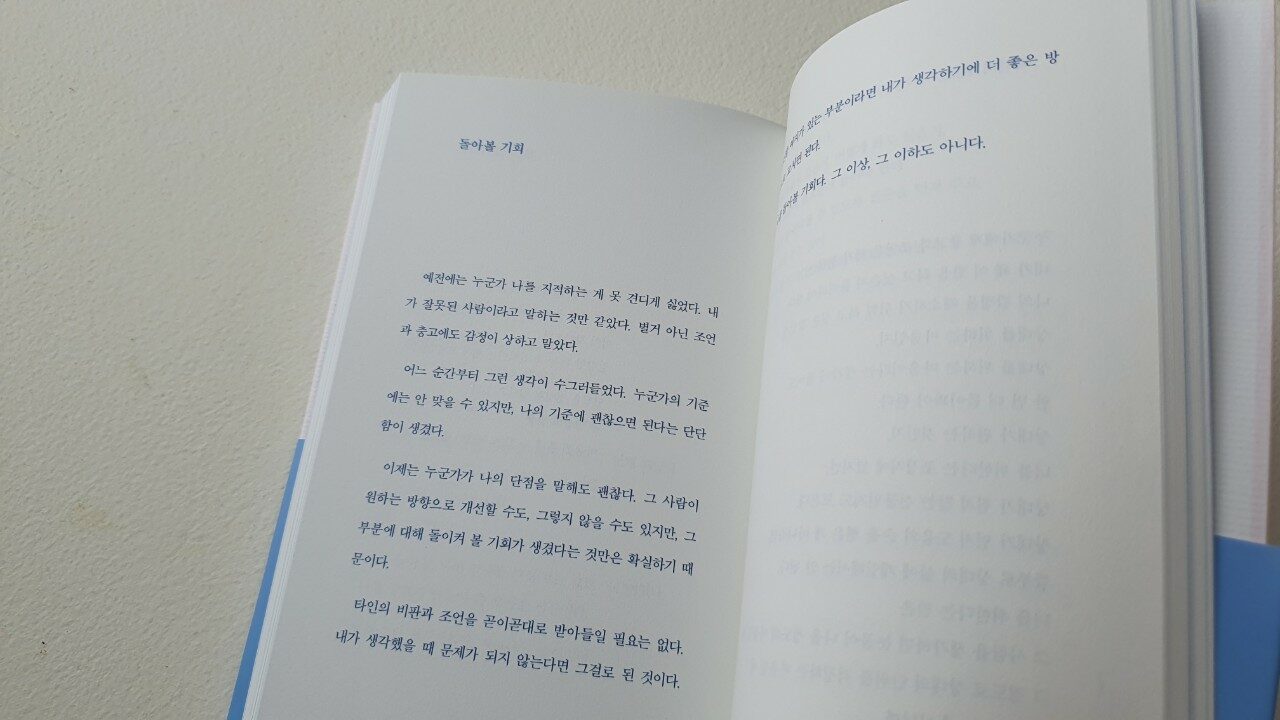 돌아볼 기회
예전에는 누군가 나를 지적하는 게 못 견디게 싫었다. 내
가 잘못된 사람이라고 말하는 것만 같았다. 별거 아닌 조언
과 충고에도 감정이 상하고 말았다.
어느 순간부터 그런 생각이 수그러들었다. 누군가의 기준
에는 안 맞을 수 있지만, 나의 기준에 괜찮으면 된다는 단단
함이 생겼다.
이제는 누군가가 나의 단점을 말해도 괜찮다. 그 사람이
원하는 방향으로 개선할 수도, 그렇지 않을 수도 있지만, 그
부분에 대해 돌이켜 볼 기회가 생겼다는 것만은 확실하기 때
문이다.
타인의 비판과 조언을 곧이곧대로 받아들일 필요는 없다.
내가 생각했을 때 문제가 되지 않는다면 그걸로 된 것이다.
있는 부분이라면 내가 생각하기에 더 좋은 방
된다.
돌아볼 기회다. 그 이상, 그 이하도 아니다.